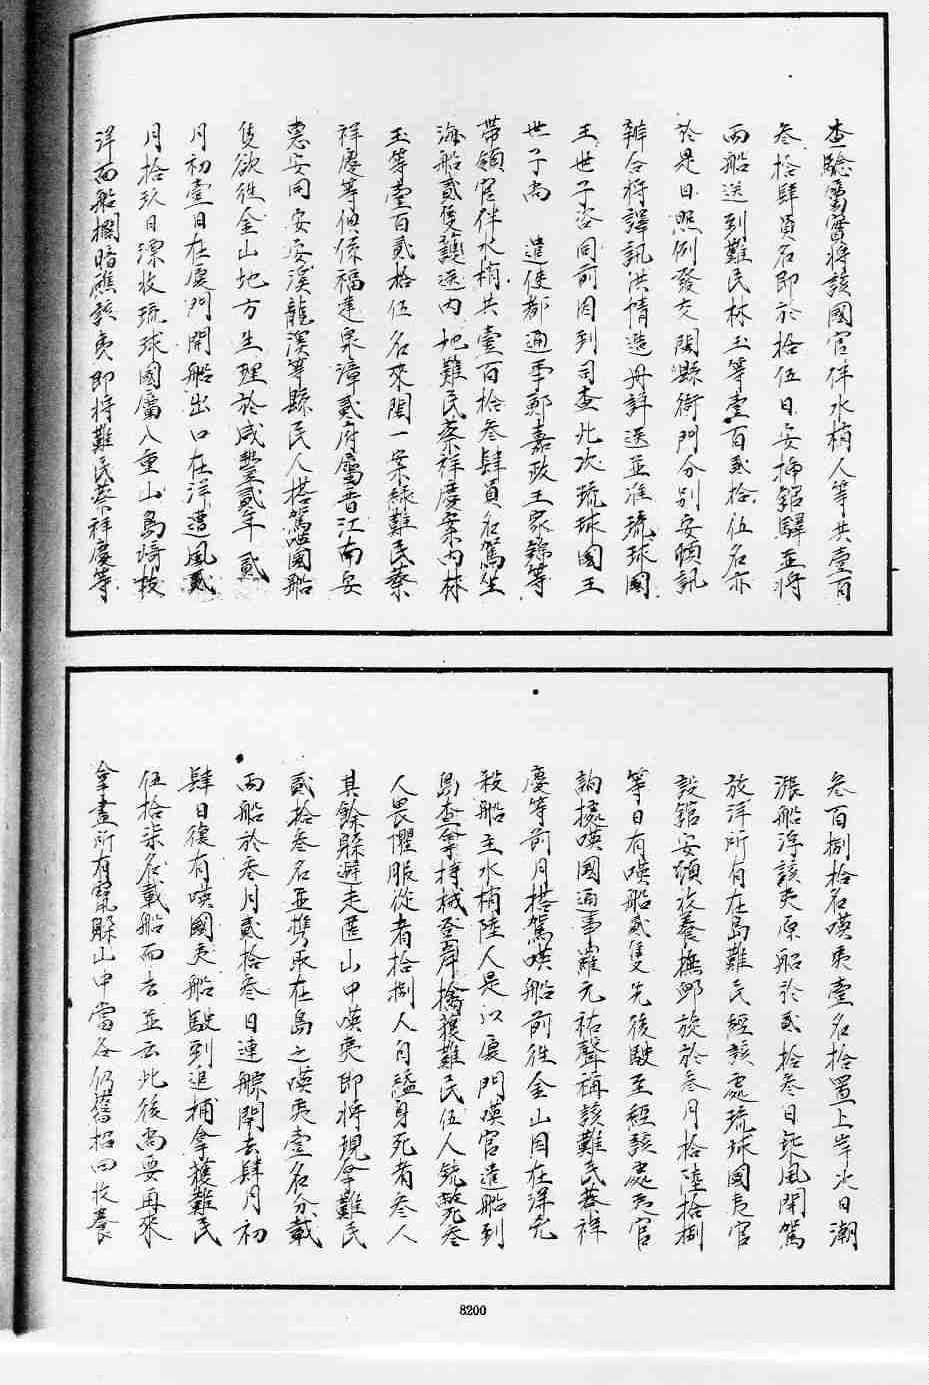 查驗當實將該國官伴水梢人等共壹百
叁拾肆員名即於拾伍日安揷舘驛並將
兩船送到難民林玉等壹百貳拾伍名亦
於是日照例發交閩縣衙門分别安頓訊
辦合將譯訊洪情造册詳送並准琉球國
王世子咨同前由到司查此次琉球國王
世子尚　遣使都通事鄭嘉政王家錦等
帶領官伴水梢共壹百拾叁肆員名駕坐
海船貳隻護送内地難民蔡祥慶案内林
玉等壹百貳拾伍名來閩一案緣難民蔡
祥慶等俱係福建泉漳貳府屬晋江南安
惠安同安安溪龍溪等縣民人搭駕嘆國船
隻欲徃金山地方生理於咸豐貳年貳
月初壹日在廈門開船出口在洋遭風貳
月拾玖日漂收琉球國屬八重山島﨑枝
洋面船擱暗礁該夷即將難民蔡祥慶等
叁百捌拾名嘆夷壹名拾置上岸次日潮
漲船浮該夷原船於貳拾叁日乗風開駕
放洋所有在島難民經該處琉球國夷官
設舘安頓收養撫卹旋於叁月拾陸拾捌
等日有嘆船貳隻先後駛至經該處夷官
詢據嘆國通事羅元祐聲稱該難民蔡祥
慶等前月搭駕嘆船前徃金山因在洋先
殺船主水梢陸人是以廈門嘆官造船到
島查拏持械登岸擒獲難民伍人銃斃叁
人畏懼服從者拾捌人自縊身死者叁人
其餘躲避走匿山中嘆夷即將現拿難民
貳拾叁名並携取在島之嘆夷壹名分載
兩船於叁月貳拾叁日連䑸開去肆月初
肆日復有嘆國夷船駛到追捕拿獲難民
伍拾柒名載船而去並云此後尚要再來
拿盡所有竄躲山中當各仍舊招回收養
8200